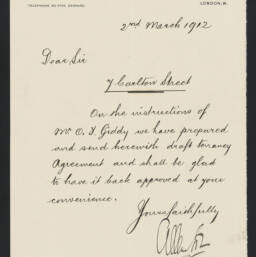 LONDON, W.
2nd March 1912
Dear Sir
7 Carlton Street
On the instructions of
Mr O. J. Giddy we have prepared
and send herewith draft tenancy
Agreement and shall be glad
to have it back approved at your
convenience.
Yours faithfully